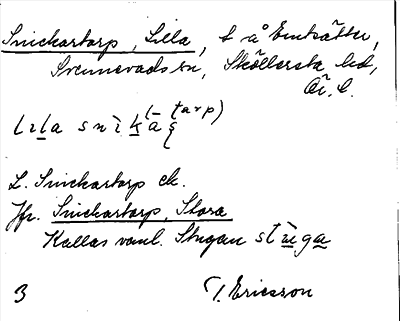 Snickartorp, Lilla, t å Emtsätter,
Svennevads sn, Sköllersta hd,
Ör. l.
lɪla snìkāʂ(tarp)
L. Snickartorp ek.
Jfr. Snickartorp, Stora
Kallas vanl. Stugan stùga
3 T. Ericsson